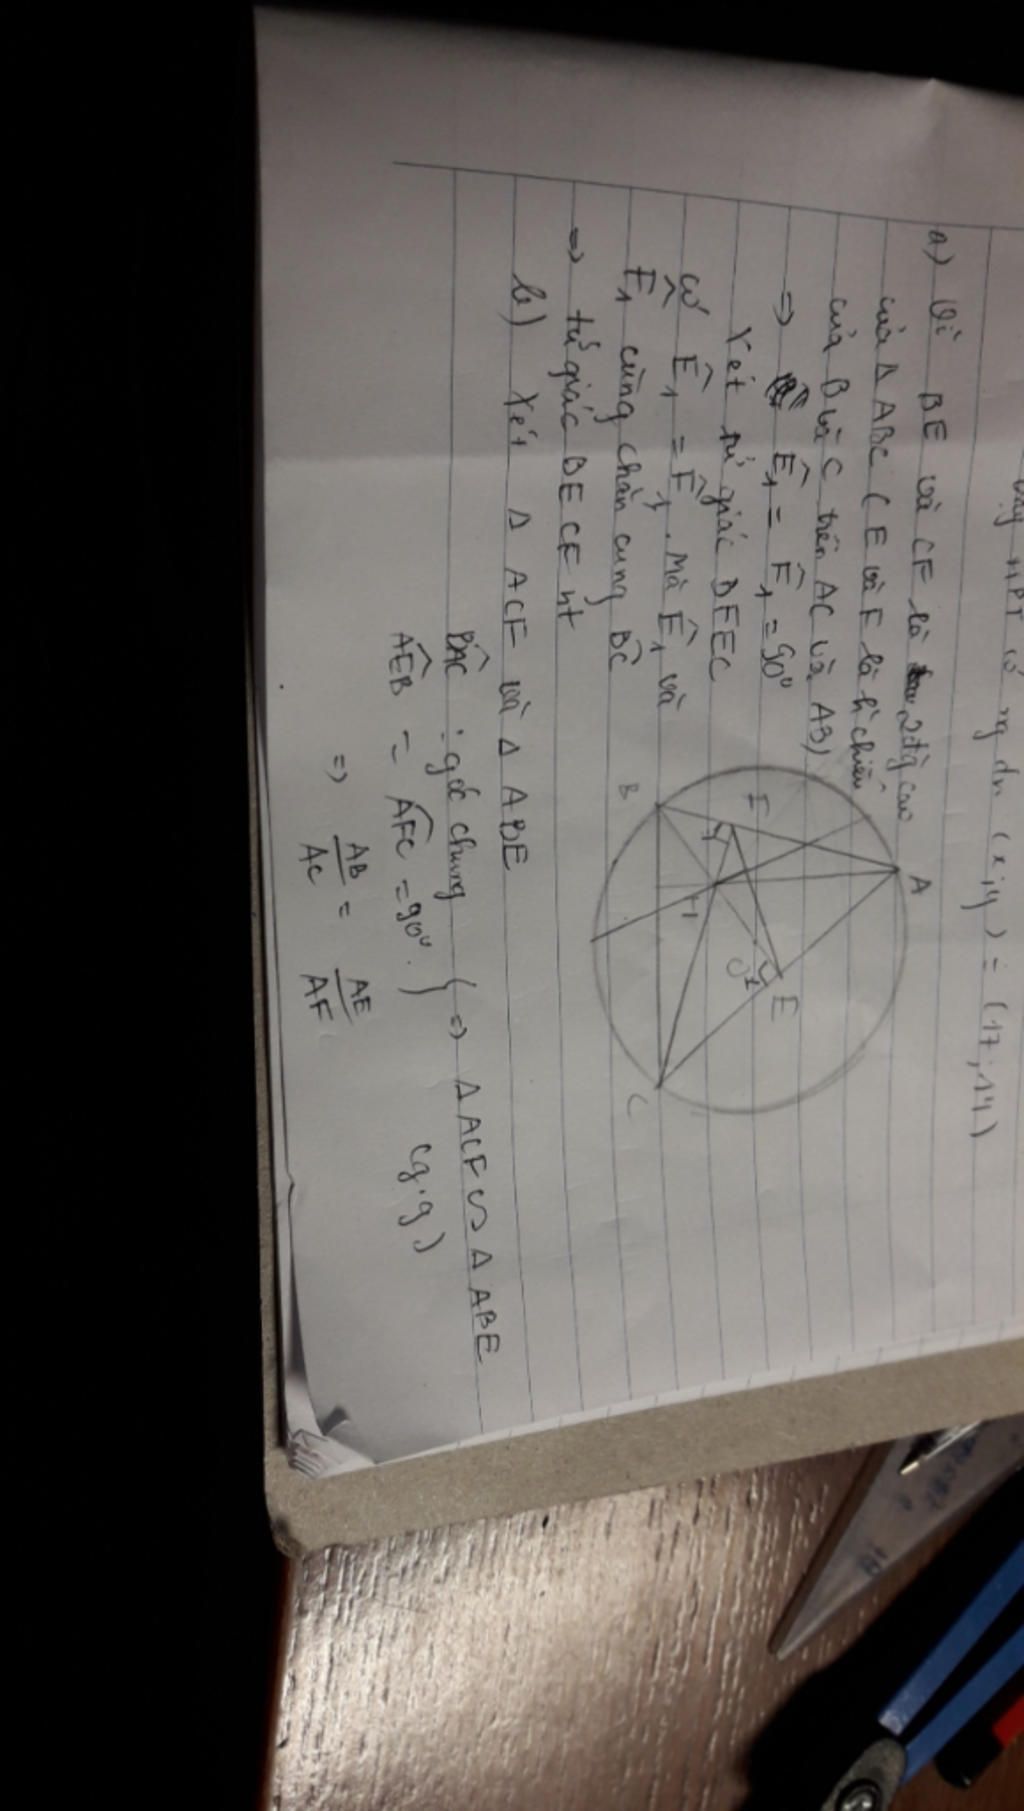 vậy HPT có ng dn (x;y) = (17;14)
a) Vì BE và CF là 2 đg cao
của Δ ABC (E và F là h chiếu
của B và C trên AC và AB)
=> Ê₁ = F̂₁ = 90°
Xét tứ giác BFEC
có Ê₁ = F̂₁. Mà Ê₁ và
F̂₁ cùng chắn cung BC
=> tứ giác BECF nt
b) Xét Δ ACF và Δ ABE
BAC : góc chung
AEB = AFC = 90°.
} => Δ ACF ∽ Δ ABE
(g.g)
=> AB/AC = AE/AF
A
B
F
1
H
O
1
E
C